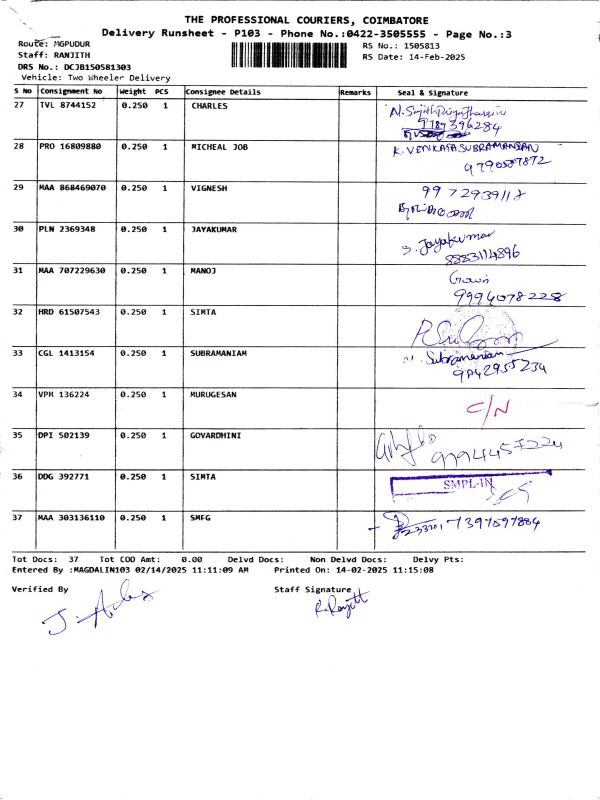 THE PROFESSIONAL COURIERS, COIMBATORE
Delivery Runsheet - P103 - Phone No.:0422-3505555 - Page No.:3
Route: MGPUDUR
RS No.: 1505813
Staff: RANJITH
RS Date: 14-Feb-2025
DRS No.: DCJB150581303
Vehicle: Two Wheeler Delivery
S No Consignment No Weight PCS Consignee Details Remarks Seal & Signature
27 TVL 8744152 0.250 1 CHARLES
28 PRO 16809880 0.250 1 MICHEAL JOB K. VENKATASUBRAMANIAN
9790587872
29 MAA 868469070 0.250 1 VIGNESH 9972939118
30 PLN 2369348 0.250 1 JAYAKUMAR S. Jayakumar
8883114896
31 MAA 707229630 0.250 1 MANOJ
9994078228
32 HRD 61507543 0.250 1 SIMTA
33 CGL 1413154 0.250 1 SUBRAMANIAM N. Subramaniam
9842955234
34 VPM 136224 0.250 1 MURUGESAN C/N
35 DPI 502139 0.250 1 GOVARDHINI
36 DDG 392771 0.250 1 SIMTA SMPL-IN
37 MAA 303136110 0.250 1 SMFG 7397597884
Tot Docs: 37 Tot COD Amt: 0.00 Delvd Docs: Non Delvd Docs: Delvy Pts:
Entered By :MAGDALIN103 02/14/2025 11:11:09 AM Printed On: 14-02-2025 11:15:08
Verified By Staff Signature
R. Ranjith